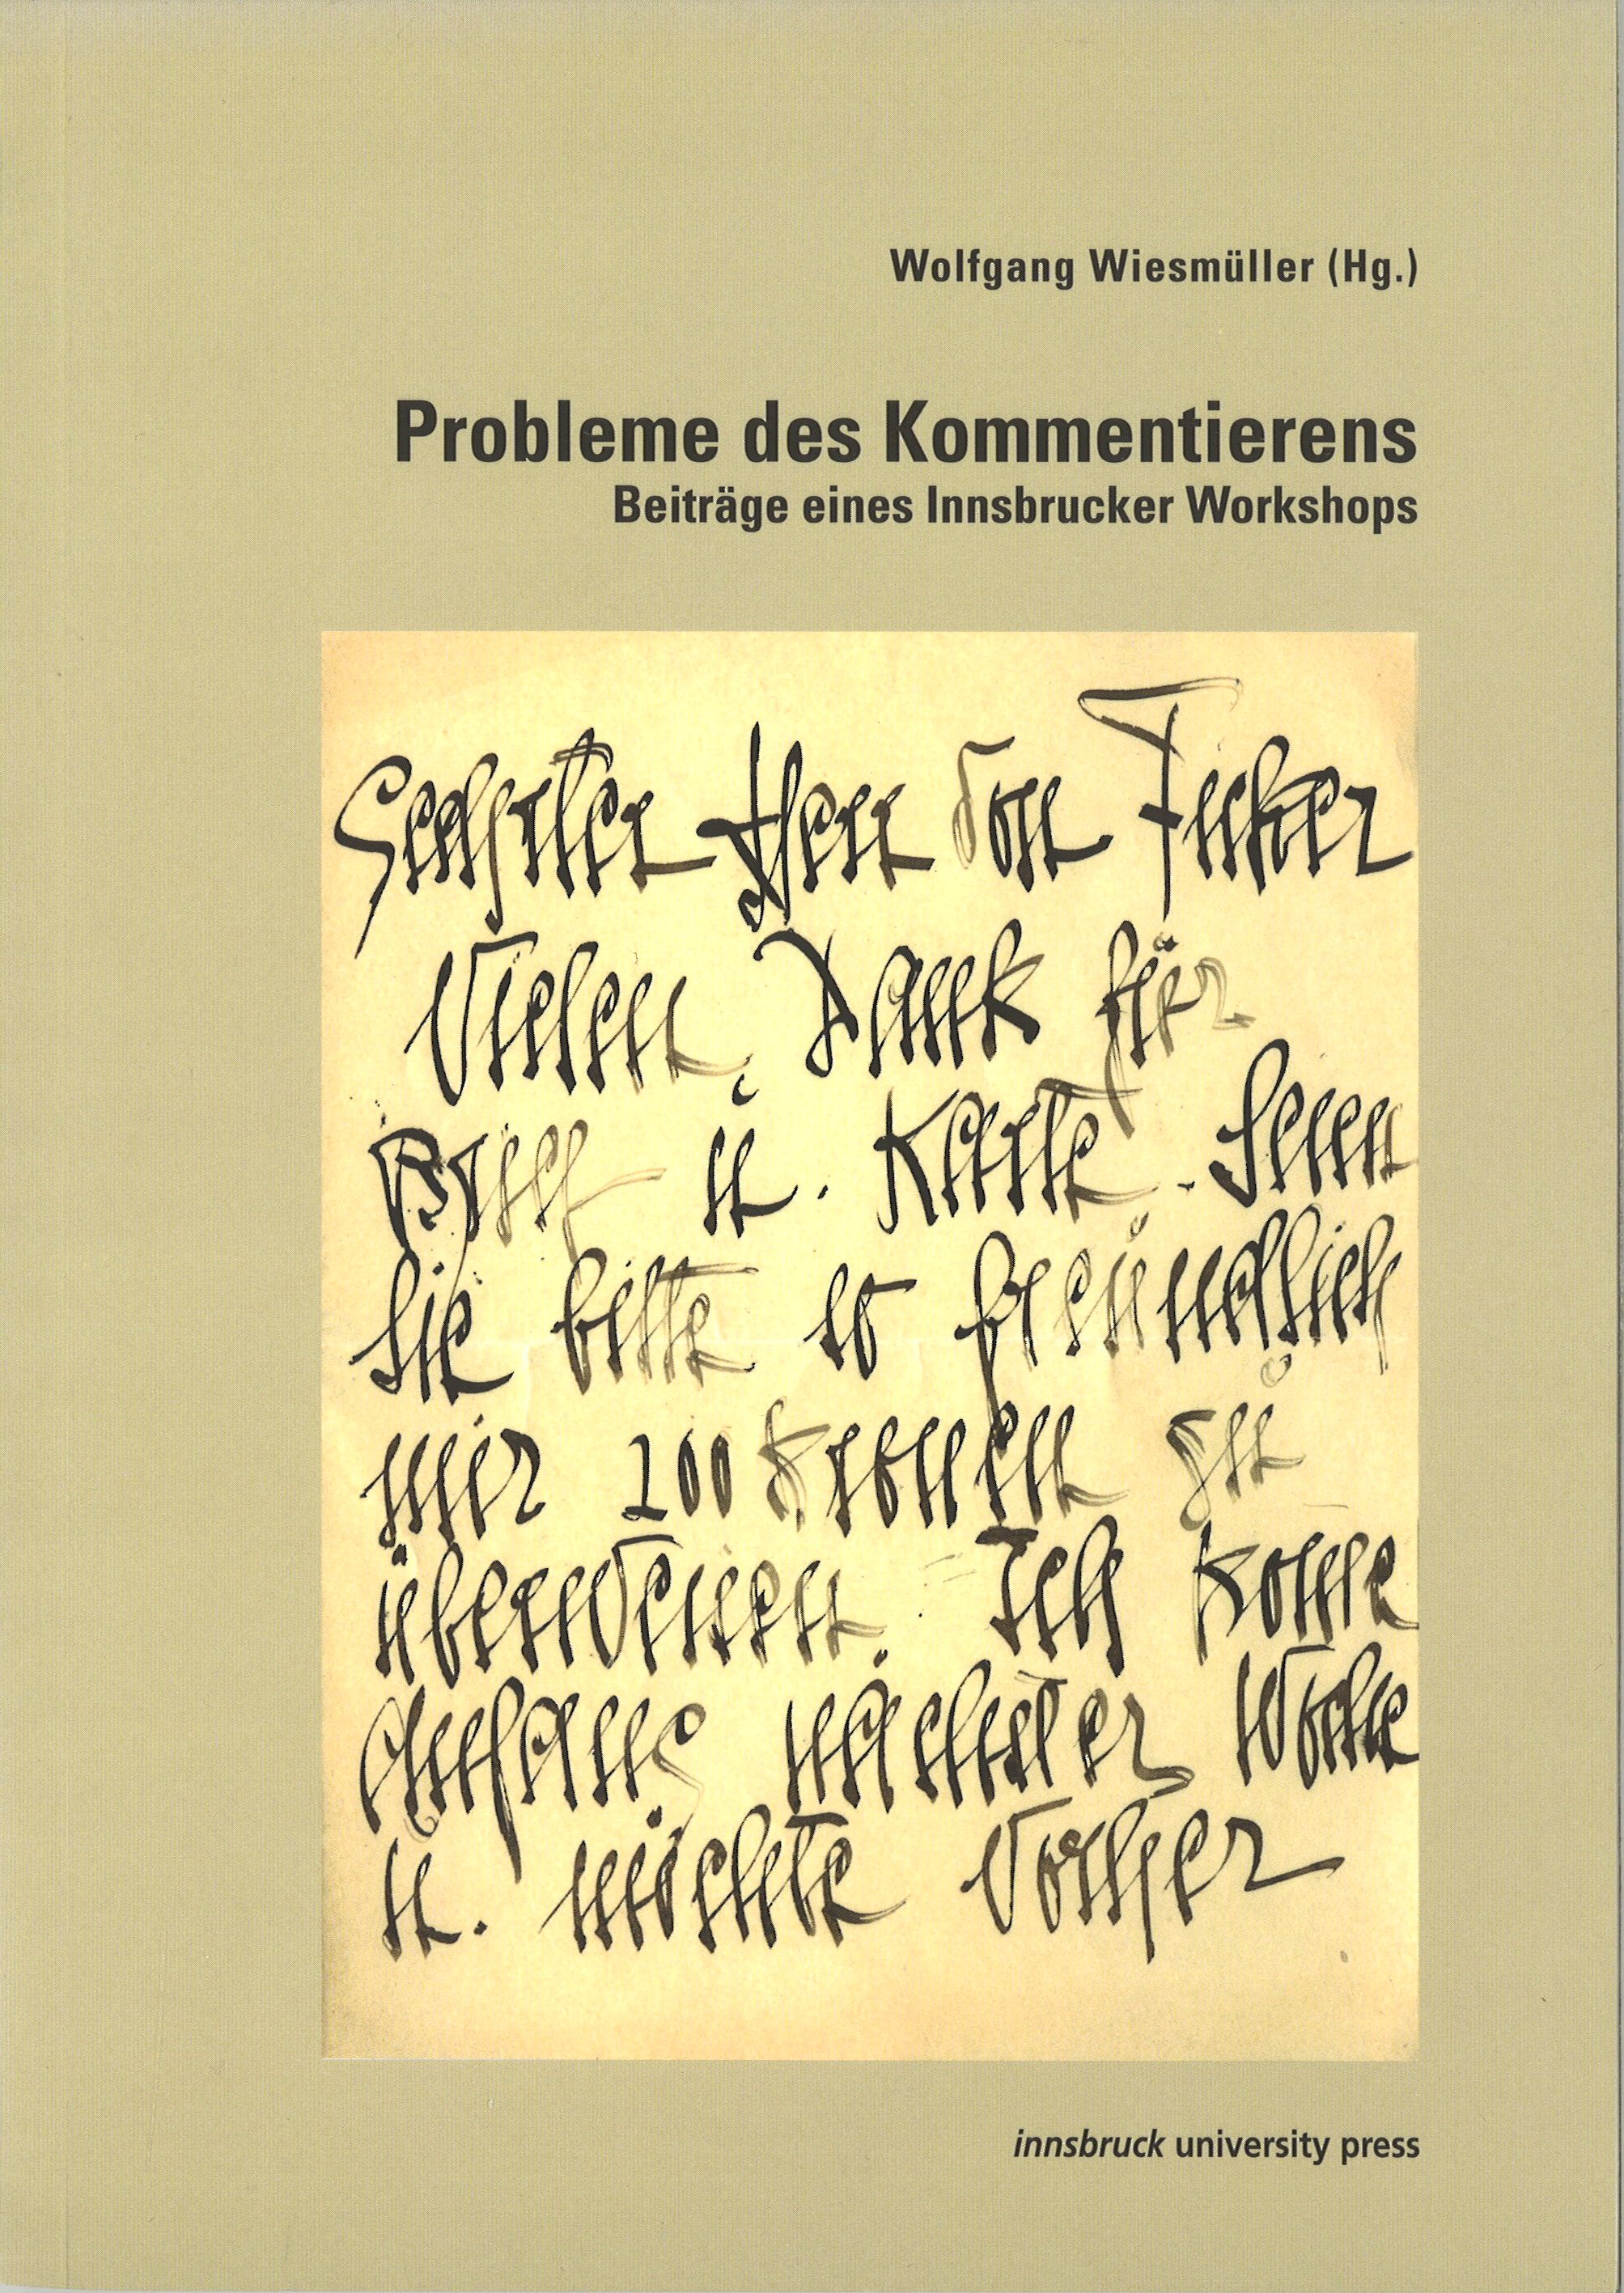 Wolfgang Wiesmüller (Hg.)
Probleme des Kommentierens
Beiträge eines Innsbrucker Workshops
Geehrter Herr von Ficker
Vielen Dank für
Brief u. Karte. Seien
Sie bitte so freundlich
mir 200 Kronen zu
überweisen. Ich komme
Anfang nächster Woche
u. möchte vorher
innsbruck university press